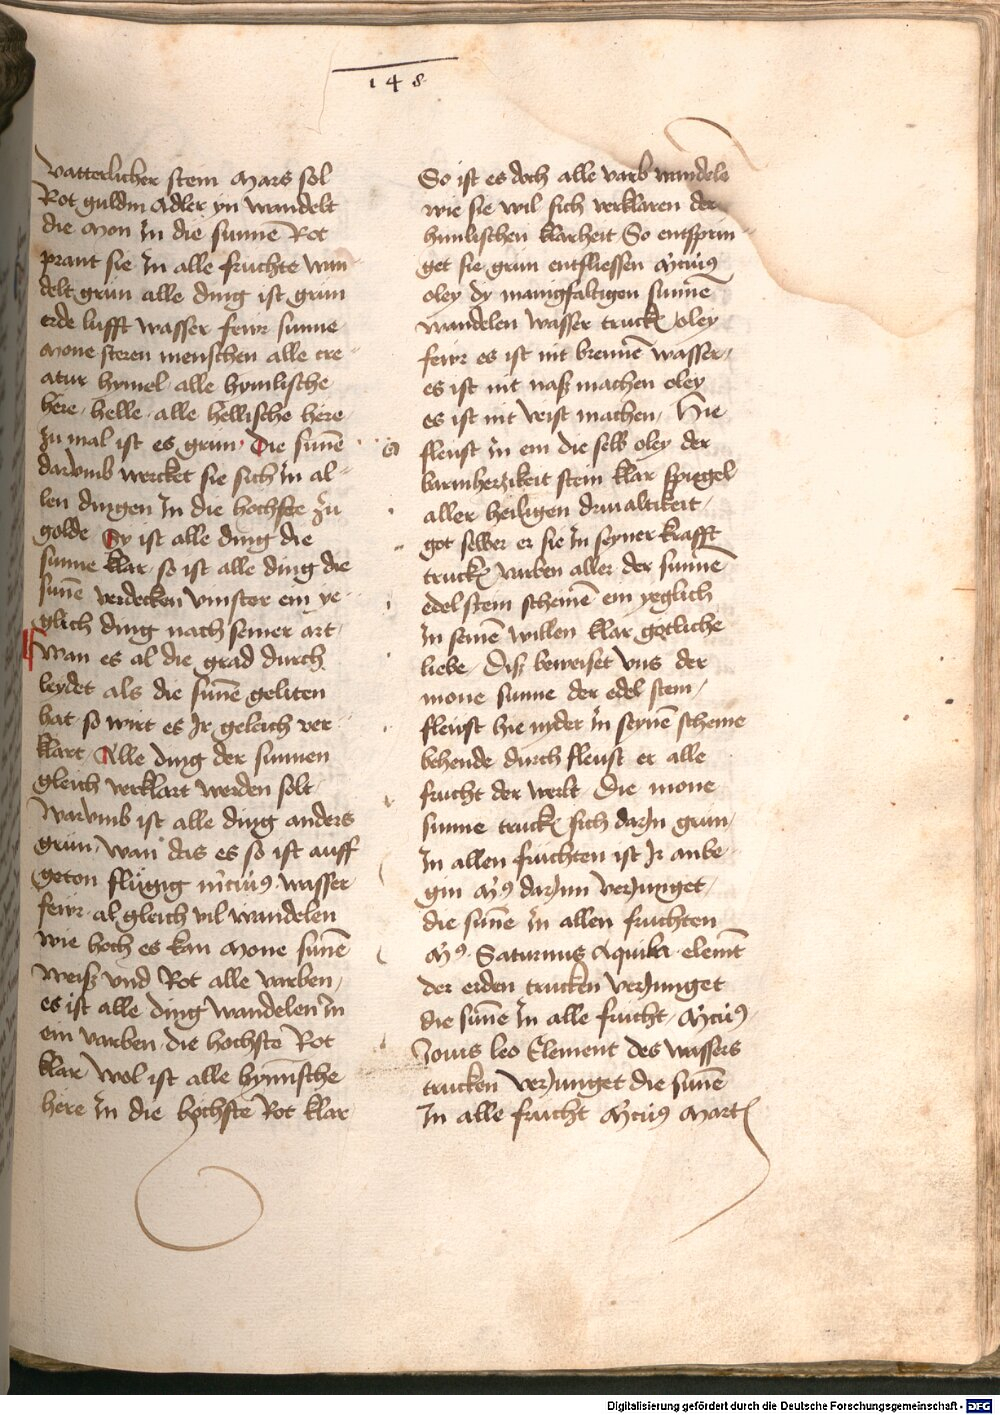 148
vatterlicher stein Mars sol
Rot guldin Adler yn wandelt
die Mon In die sunne Rot
prant sie In alle fruchte wan
delt grun alle ding ist grun
erde lufft wasser fewr sunne
Mone steren menschen alle cre
atur hymel alle hymlische
here helle alle hellische here
zu mal ist es grun Die sunē
darvmb wercket sie sich In al
len dingen In die hochste zu
golde Ey ist alle ding die
sunne klar so ist alle ding die
sunē verdecken vinster ein ye
glich ding nach seiner art
wan es al die grad durch
leydet als die sunē geliten
hat so wirt es Ir geleich ver
klart Alle ding der sunnen
gleich verklart werden solt
warvmb ist alle ding anders
grun wan das es so ist auff
geton flugig m̄cuiꝰ wasser
fewr al gleich vil wandelen
wie hoch es kan Mone sunē
weiß vnd Rot alle varben
es ist alle ding wandelen In
ein varben die hochste Rot
klar wol ist alle hymische
here In die hochste Rot klar
So ist es doch alle varb wandels
wie sie wil sich verklaren der
himlischen klarheit So entsprin
get sie grun entfliessen M̄cuiꝰ
oley dy manigfaltigen sunnē
wandelen wasser truckē oley
fewr es ist nit brennē wasser
es ist nit naß machen oley
es ist nit veist machen Hie
fleust In ein die selb oley der
barmherzikeit stein klar spiegel
aller heiligen driualtikeit
got selber er sie In seyner krafft
truckē varben aller der sunnē
edel stein scheinē ein yeglich
In seinē willen klar gotliche
liebe Diß beweiset vns der
mone sunne der edel stein
fleust hie nyder In seynē scheine
behende durch fleust er alle
frucht der werlt Die mone
sunne truckē sich darIn grun
In allen fruchten ist Ir anbe
gin M̄ꝰ darInn verJunget
die sunē In allen fruchten
M̄ꝰ Saturnus Aquila elemēt
der erden trucken verJunget
die sunē In alle frucht M̄cuiꝰ
Jouis leo Element des wassers
trucken verJunget die sunē
In alle frucht M̄cuiꝰ Martꝭ
Digitalisierung gefördert durch die Deutsche Forschungsgemeinschaft - DFG